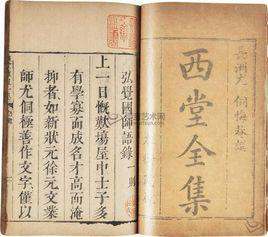 長洲尤侗悔菴
西堂全集
弘覺國師語錄 則
上一日慨歎塲屋中士子多
有學寡而成名才高而淹
抑者如新狀元徐元文業
師尤侗極善作文字僅以